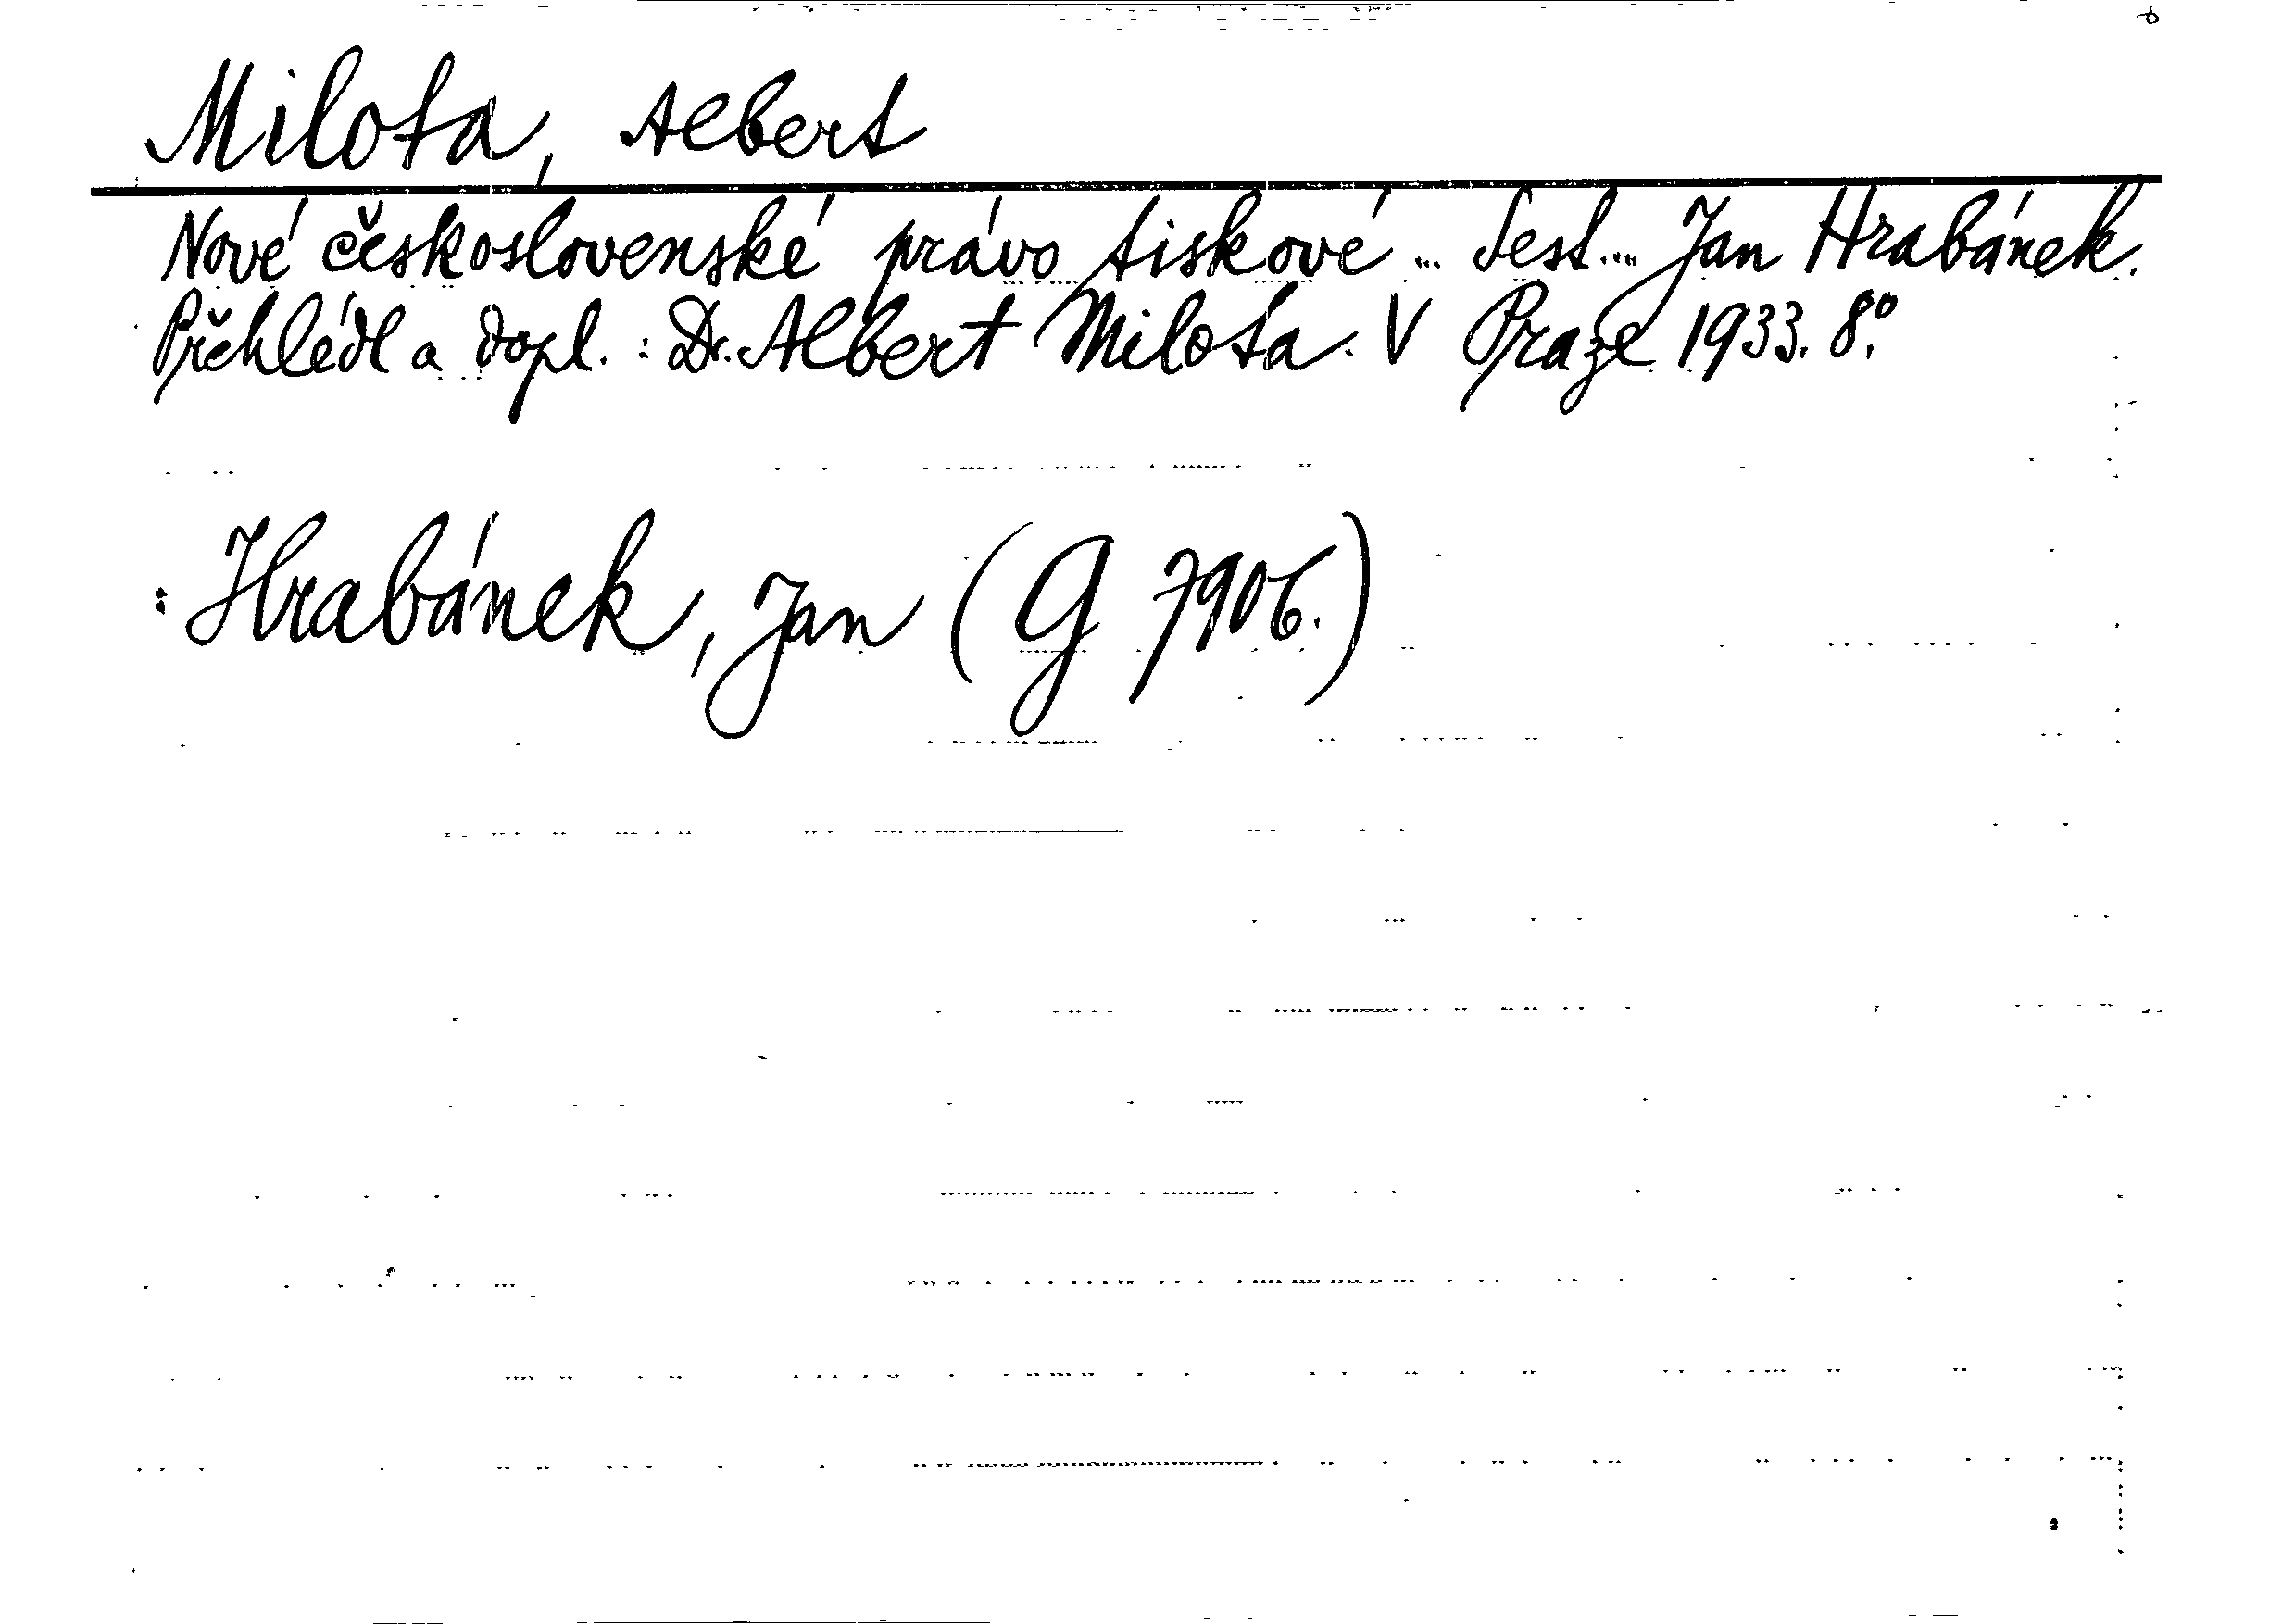 Milota, Albert
Nové československé právo tiskové ... Sest.... Jan Hrabánek.
Přehlédl a dopl. : Dr. Albert Milota. V Praze 1933. 8.°
: Hrabánek, Jan (G 7906.)